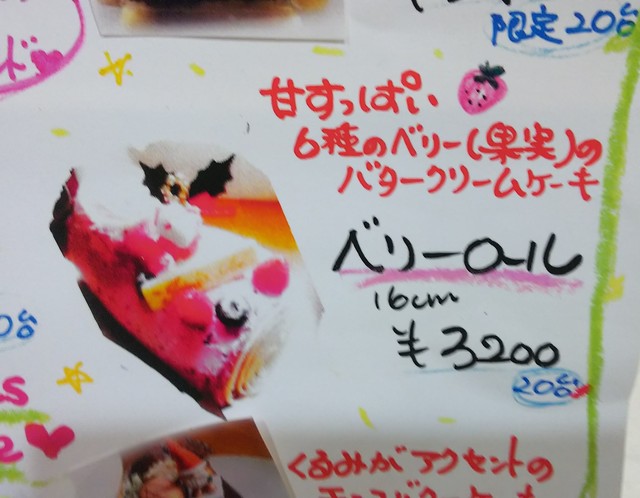 限定20台
ド
甘すっぱい
6種のベリー(果実)の
バタークリームケーキ
ベリーロール
16cm
¥3200
20台
0台
くるみがアクセントの